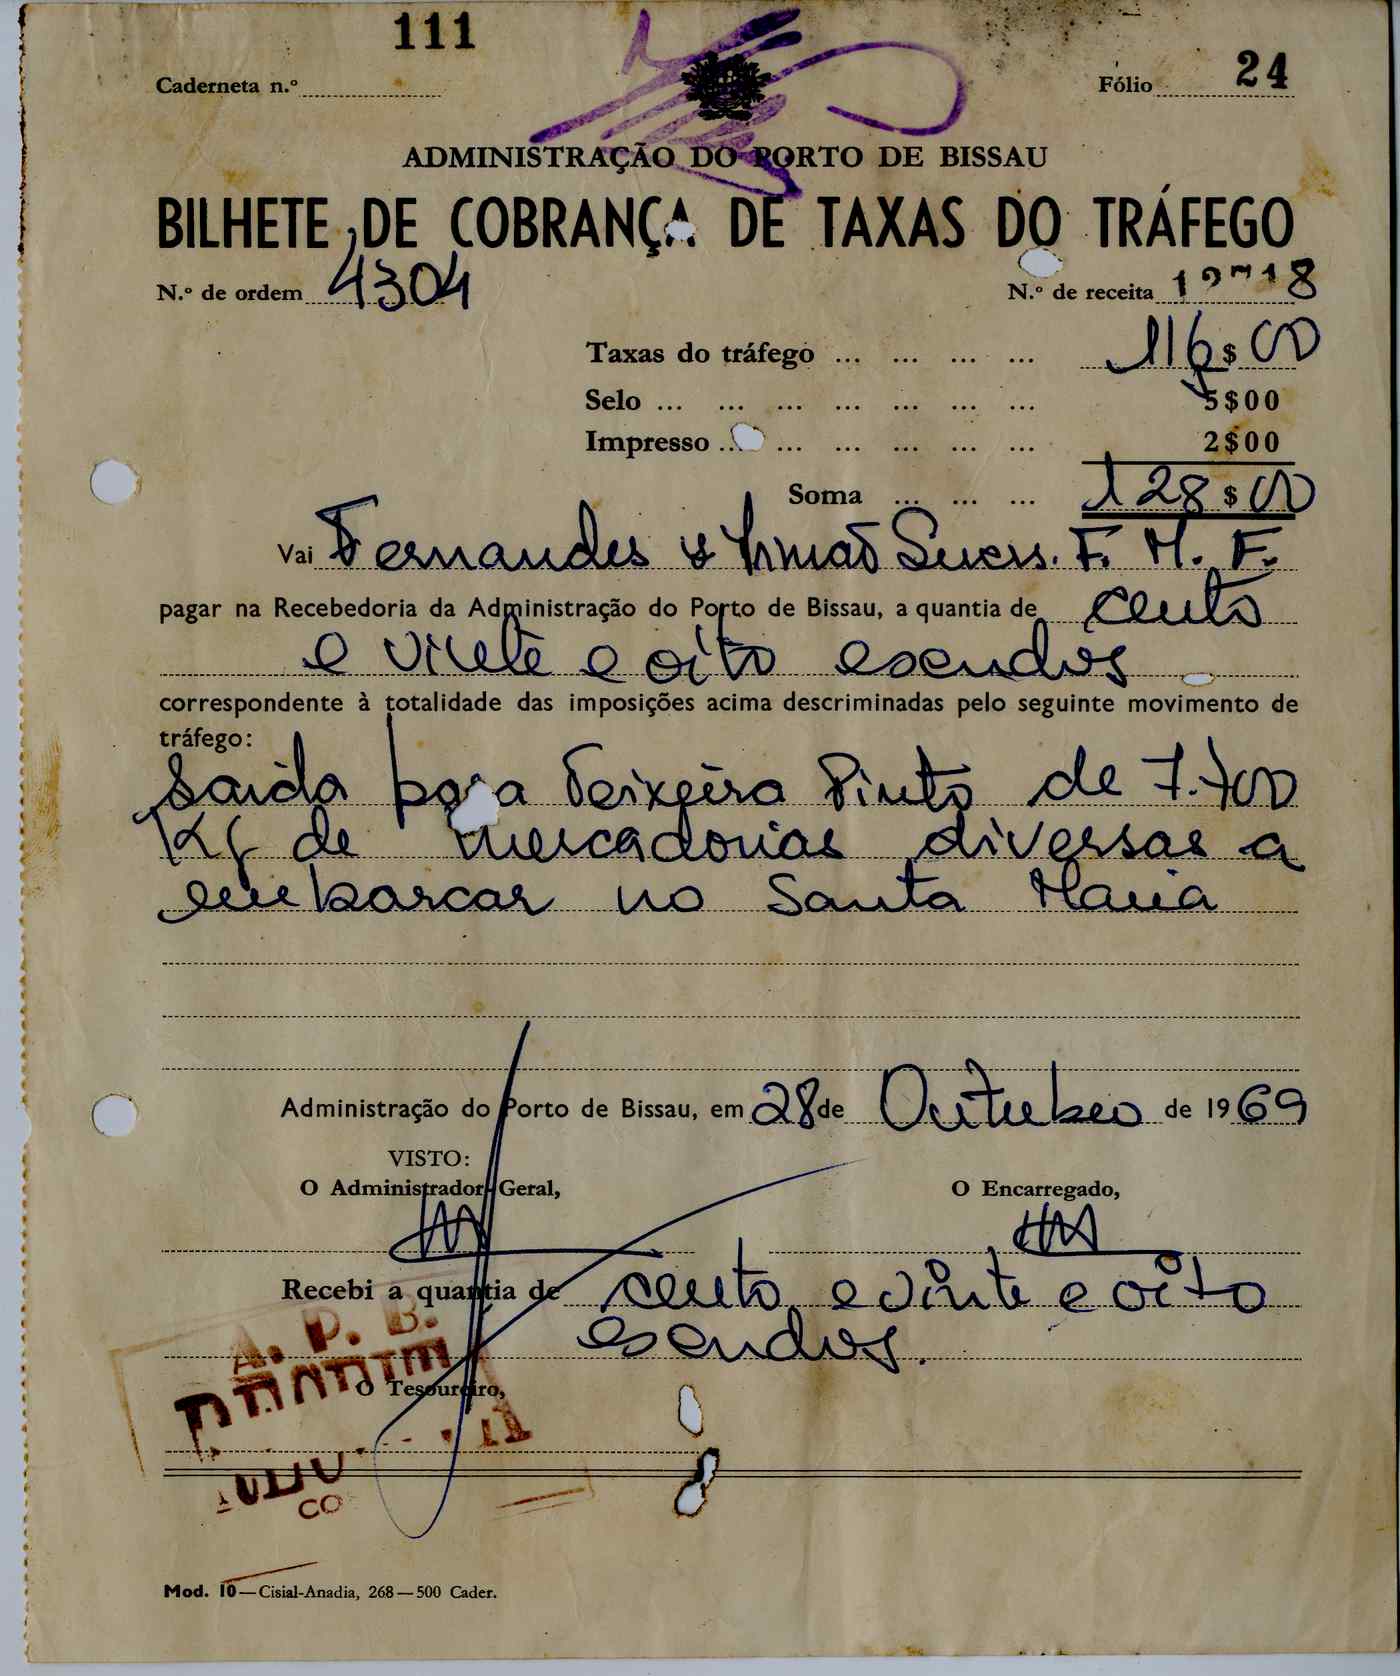 111
Caderneta n.º
Fólio 24
ADMINISTRAÇÃO DO PORTO DE BISSAU
BILHETE DE COBRANÇA DE TAXAS DO TRÁFEGO
N.º de ordem 4304
N.º de receita
Taxas do tráfego ... ... ... ... 116$00
Selo ... ... ... ... ... ... ... 5$00
Impresso ... ... ... ... ... ... 2$00
Soma ... ... ... 128$00
Vai Fernandes & Irmão Sucrs. F. M. F.
pagar na Recebedoria da Administração do Porto de Bissau, a quantia de cento
e vinte e oito escudos
correspondente à totalidade das imposições acima descriminadas pelo seguinte movimento de
tráfego:
Saída para Teixeira Pinto de 7.700
Kg de mercadorias diversas a
embarcar no Santa Maria
Administração do Porto de Bissau, em 28 de Outubro de 1969
VISTO:
O Administrador-Geral,
O Encarregado,
Recebi a quantia de cento e vinte e oito
escudos.
A. P. B.
O Tesoureiro,
CO
Mod. 10—Cisial-Anadia, 268—500 Cader.